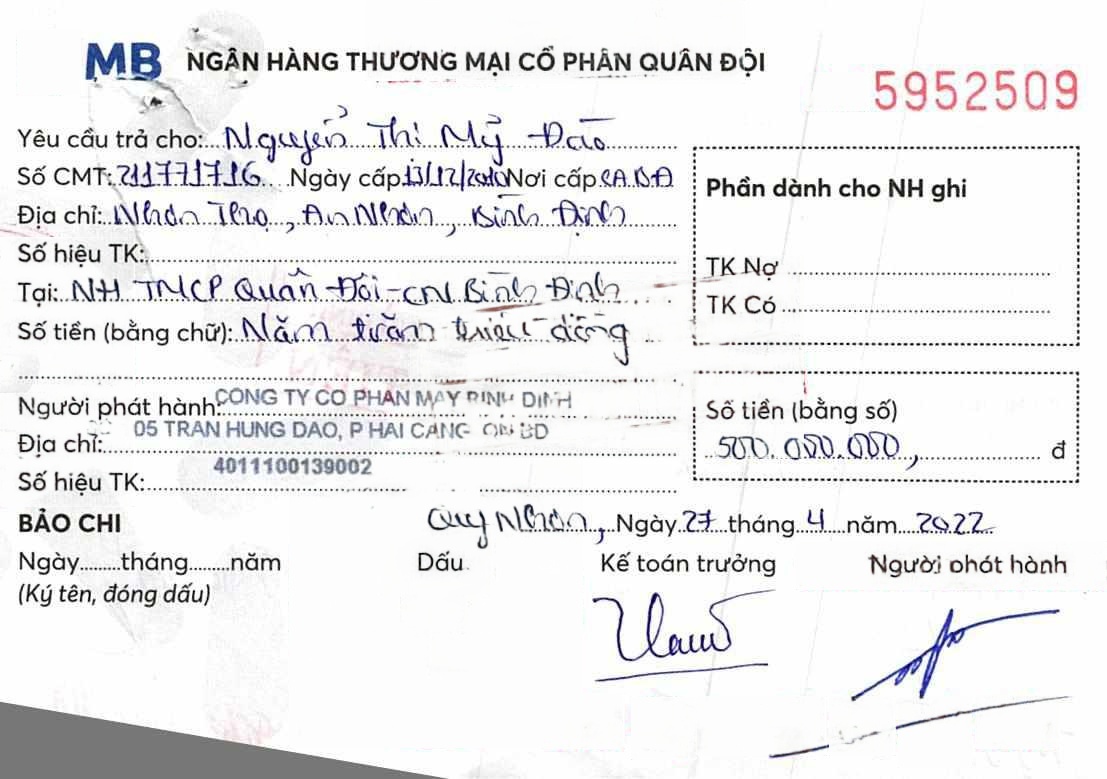 MB NGÂN HÀNG THƯƠNG MẠI CỔ PHẦN QUÂN ĐỘI
5952509
Yêu cầu trả cho: Nguyễn Thị Mỹ Đào
Số CMT: 211771716 Ngày cấp 13/12/2010 Nơi cấp C.A.B.Đ
Địa chỉ: Nhơn Thọ, An Nhơn, Bình Định
Số hiệu TK:
Tại: NH TMCP Quân Đội - CN Bình Định
Số tiền (bằng chữ): Năm trăm triệu đồng
Phần dành cho NH ghi
TK Nợ
TK Có
Người phát hành: CONG TY CO PHAN MAY BINH DINH
Địa chỉ: 05 TRAN HUNG DAO, P HAI CANG QN BD
Số hiệu TK: 4011100139002
Số tiền (bằng số)
500.000.000, đ
BẢO CHI
Quy Nhơn, Ngày 27 tháng 4 năm 2022
Ngày tháng năm Dấu Kế toán trưởng Người phát hành
(Ký tên, đóng dấu)